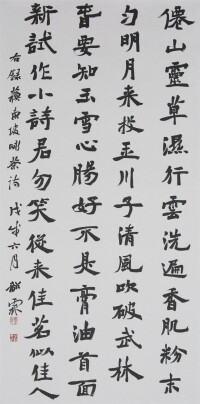 僊山靈草濕行雲洗遍香肌粉末
勻明月来投玉川子清風吹破武林
旾要知玉雪心腸好不是膏油首面
新試作小詩君勿笑從来佳茗似佳人
右錄蘇東坡咏茶詩 戊戌六月